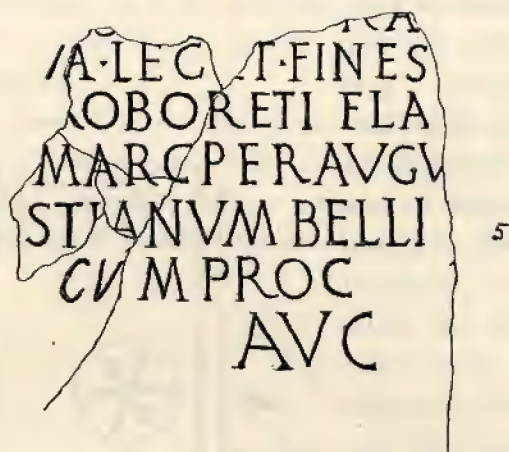 RA
IA·LEG ET·FINES
ROBORETI FLA
MARC PER AVGV
STIANVM BELLI 5
CVM PROC
AVC